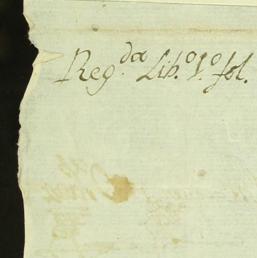 Reg.da Lib.o 1.o fol.